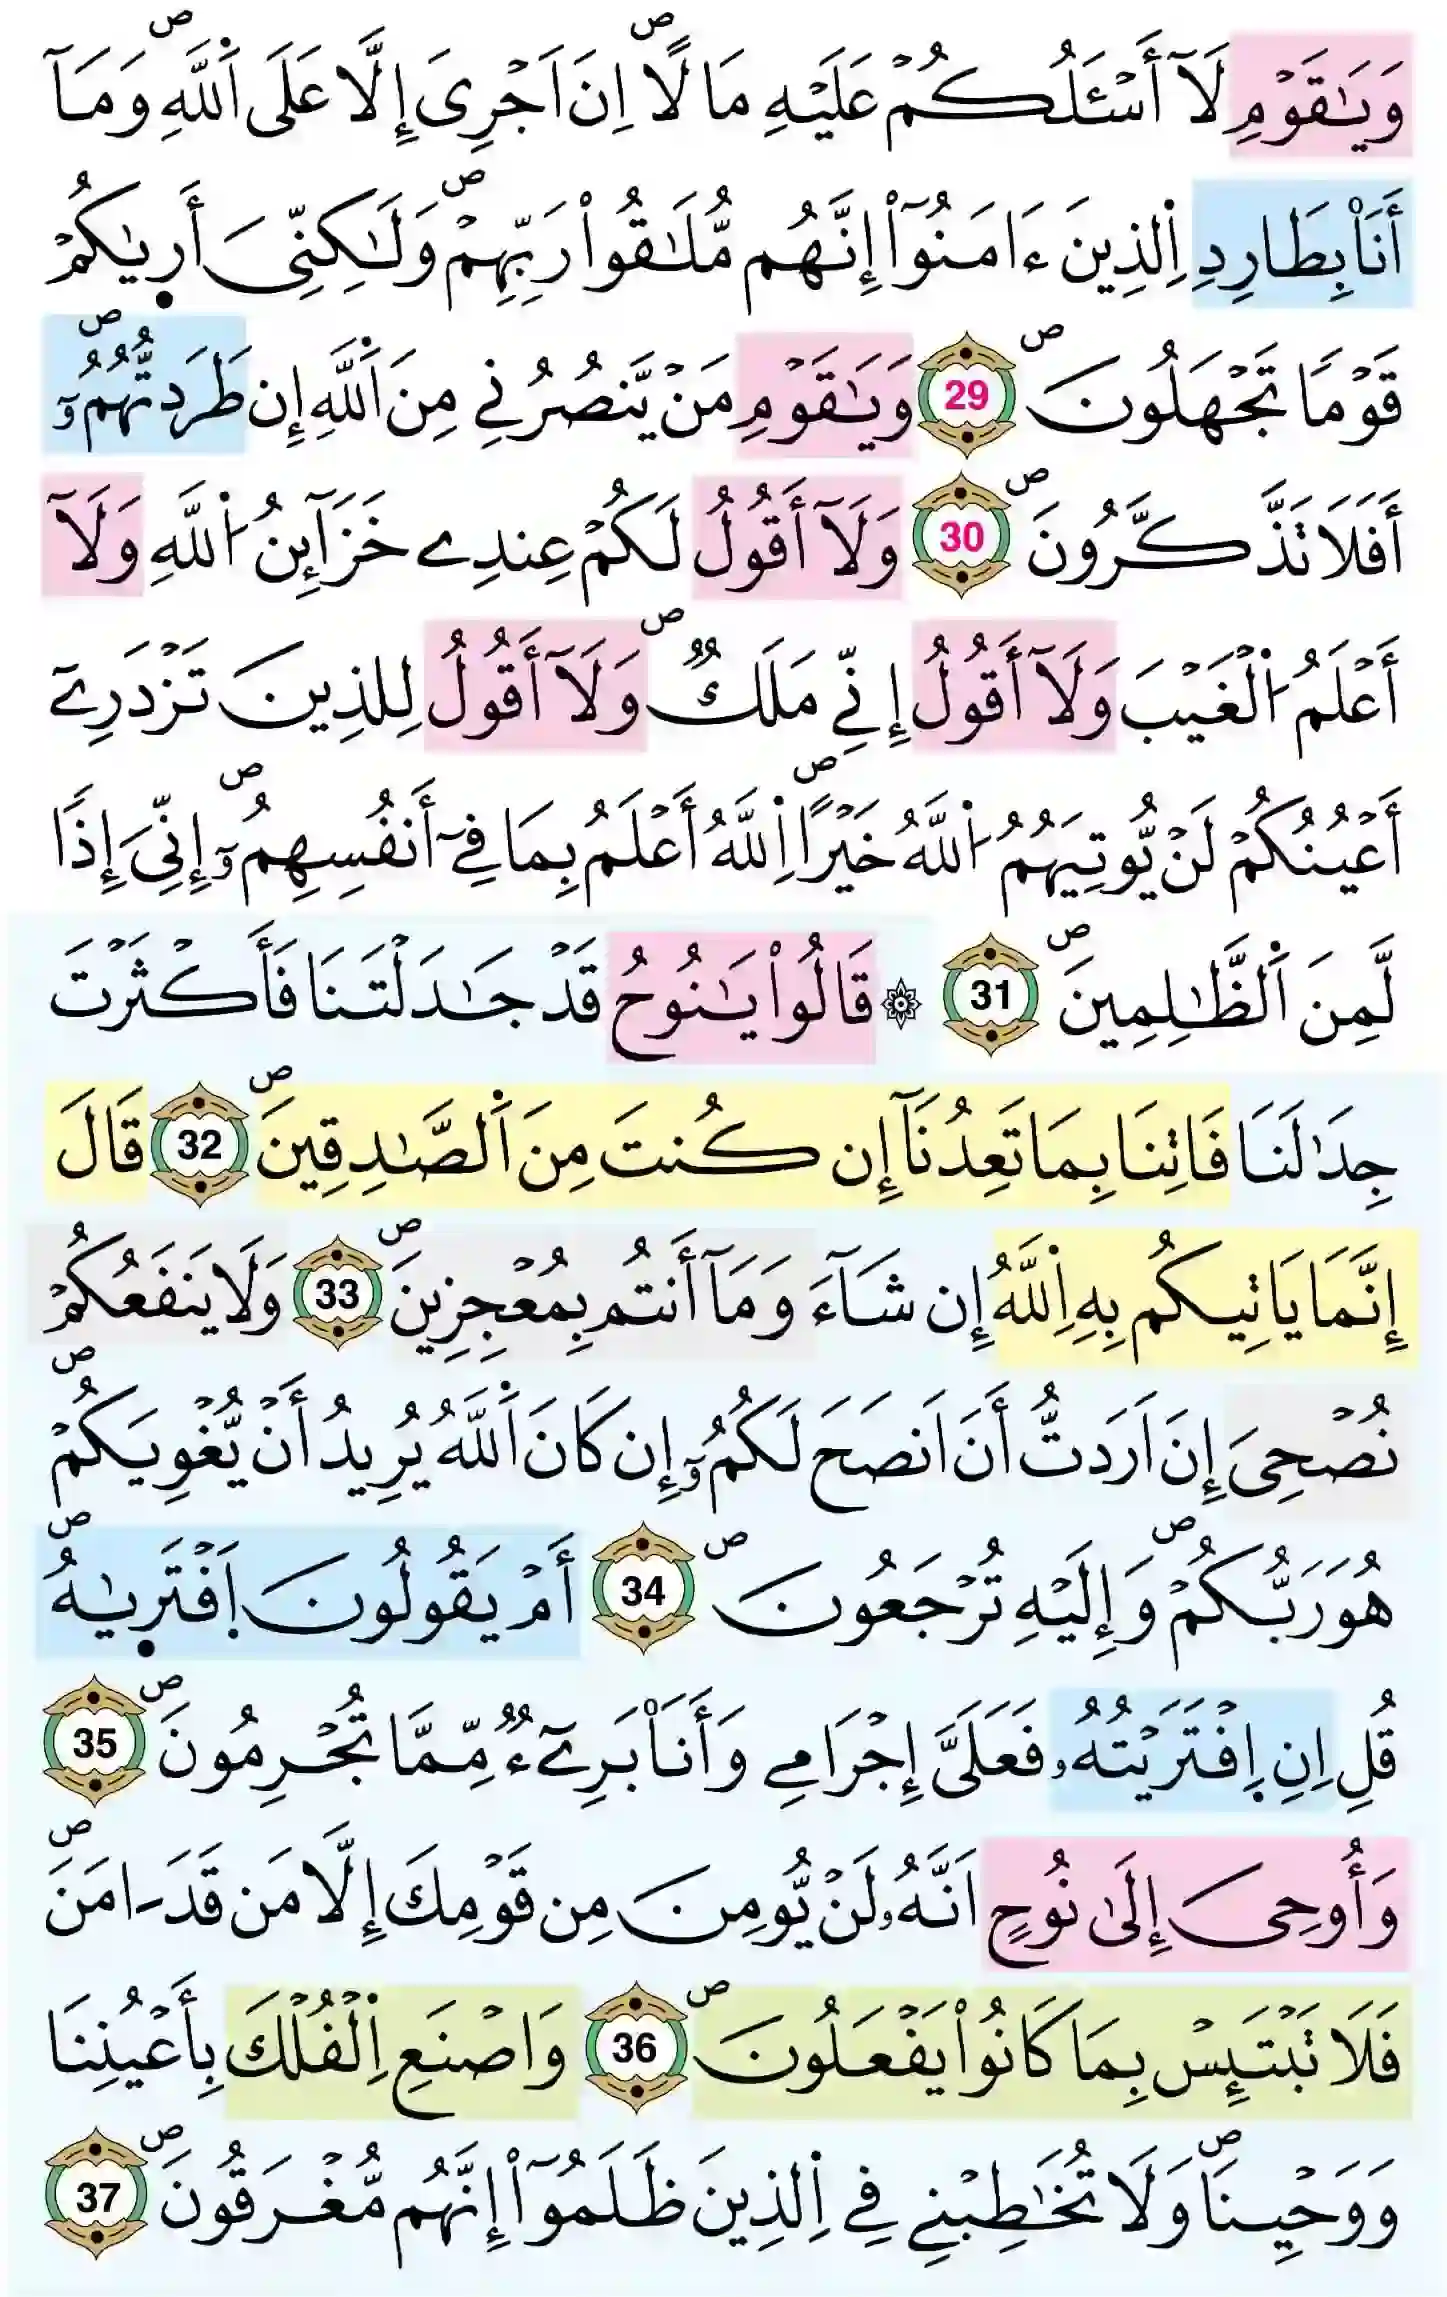 وَيَٰقَوْمِ لَآ أَسْـَٔلُكُمْ عَلَيْهِ مَالًاۖ اِنَ اَجْرِىَ إِلَّا عَلَى اَ۬للَّهِۖ وَمَآ
أَنَا۠ بِطَارِدِ اِ۬لذِينَ ءَامَنُوٓاْۖ إِنَّهُم مُّلَٰقُواْ رَبِّهِمْۖ وَلَٰكِنِّىَ أَر۪يٰكُمْ
قَوْمًا تَجْهَلُونَۖ 29 وَيَٰقَوْمِ مَنْ يَّنصُرُنِے مِنَ اَ۬للَّهِ إِن طَرَدتُّهُمُۥٓۖ
أَفَلَا تَذَّكَّرُونَۖ 30 وَلَآ أَقُولُ لَكُمْ عِندِے خَزَآئِنُ اُ۬للَّهِ وَلَآ
أَعْلَمُ اُ۬لْغَيْبَ وَلَآ أَقُولُ إِنِّے مَلَكٞۖ وَلَآ أَقُولُ لِلذِينَ تَزْدَرِےٓ
أَعْيُنُكُمْ لَنْ يُّوتِيَهُمُ اُ۬للَّهُ خَيْراًۖ اِ۬للَّهُ أَعْلَمُ بِمَا فِےٓ أَنفُسِهِمُۥٓۖ إِنِّىَ إِذاٗ
لَّمِنَ اَ۬لظَّٰلِمِينَۖ 31 ۞ قَالُواْ يَٰنُوحُ قَدْ جَٰدَلْتَنَا فَأَكْثَرْتَ
جِدَٰلَنَا فَاتِنَا بِمَا تَعِدُنَآ إِن كُنتَ مِنَ اَ۬لصَّٰدِقِينَۖ 32 قَالَ
إِنَّمَا يَاتِيكُم بِهِ اِ۬للَّهُ إِن شَآءَ وَمَآ أَنتُم بِمُعْجِزِينَۖ 33 وَلَا يَنفَعُكُمْ
نُصْحِىَ إِنَ اَرَدتُّ أَنَ اَنصَحَ لَكُمُۥٓ إِن كَانَ اَ۬للَّهُ يُرِيدُ أَنْ يُّغْوِيَكُمْۖ
هُوَ رَبُّكُمْۖ وَإِلَيْهِ تُرْجَعُونَۖ 34 أَمْ يَقُولُونَ اَ۪فْتَر۪يٰهُۖ
قُلِ اِنِ اِ۪فْتَرَيْتُهُۥ فَعَلَىَّ إِجْرَامِے وَأَنَا۠ بَرِےٓءٞ مِّمَّا تُجْرِمُونَۖ 35
وَأُوحِىَ إِلَىٰ نُوحٍ اَنَّهُۥ لَنْ يُّومِنَ مِن قَوْمِكَ إِلَّا مَن قَدَ اٰمَنَۖ
فَلَا تَبْتَئِسْ بِمَا كَانُواْ يَفْعَلُونَۖ 36 وَاصْنَعِ اِ۬لْفُلْكَ بِأَعْيُنِنَا
وَوَحْيِنَاۖ وَلَا تُخَٰطِبْنِے فِے اِ۬لذِينَ ظَلَمُوٓاْ إِنَّهُم مُّغْرَقُونَۖ 37